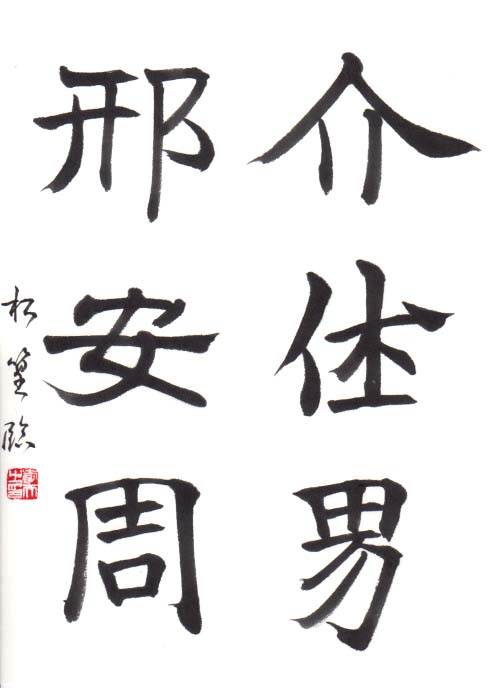 介休男
邢安周
松臨